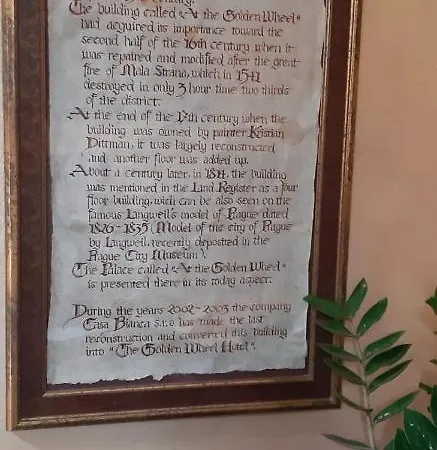 century.
The building called "At the Golden Wheel"
had acquired its importance toward the
second half of the 16th century when it
was repaired and modified after the great
fire of Mala Strana, which in 1541
destroyed in only 3 hour time two thirds
of the district.
At the end of the 17th century when the
building was owned by painter Kristian
Dittman, it was largely reconstructed
and another floor was added up.
About a century later, in 1811, the building
was mentioned in the Land Register as a four
floor building, wich can be also seen on the
famous Langweil's model of Prague dated
1826-1835 (Model of the city of Prague
by Langweil, recently deposited in the
Prague City Museum).
The Palace called "At the Golden Wheel"
is presented there in its today aspect.
During the years 2002-2003 the company
Casa Bianca s.r.o. has made the last
reconstruction and converted this building
into "The Golden Wheel Hotel".